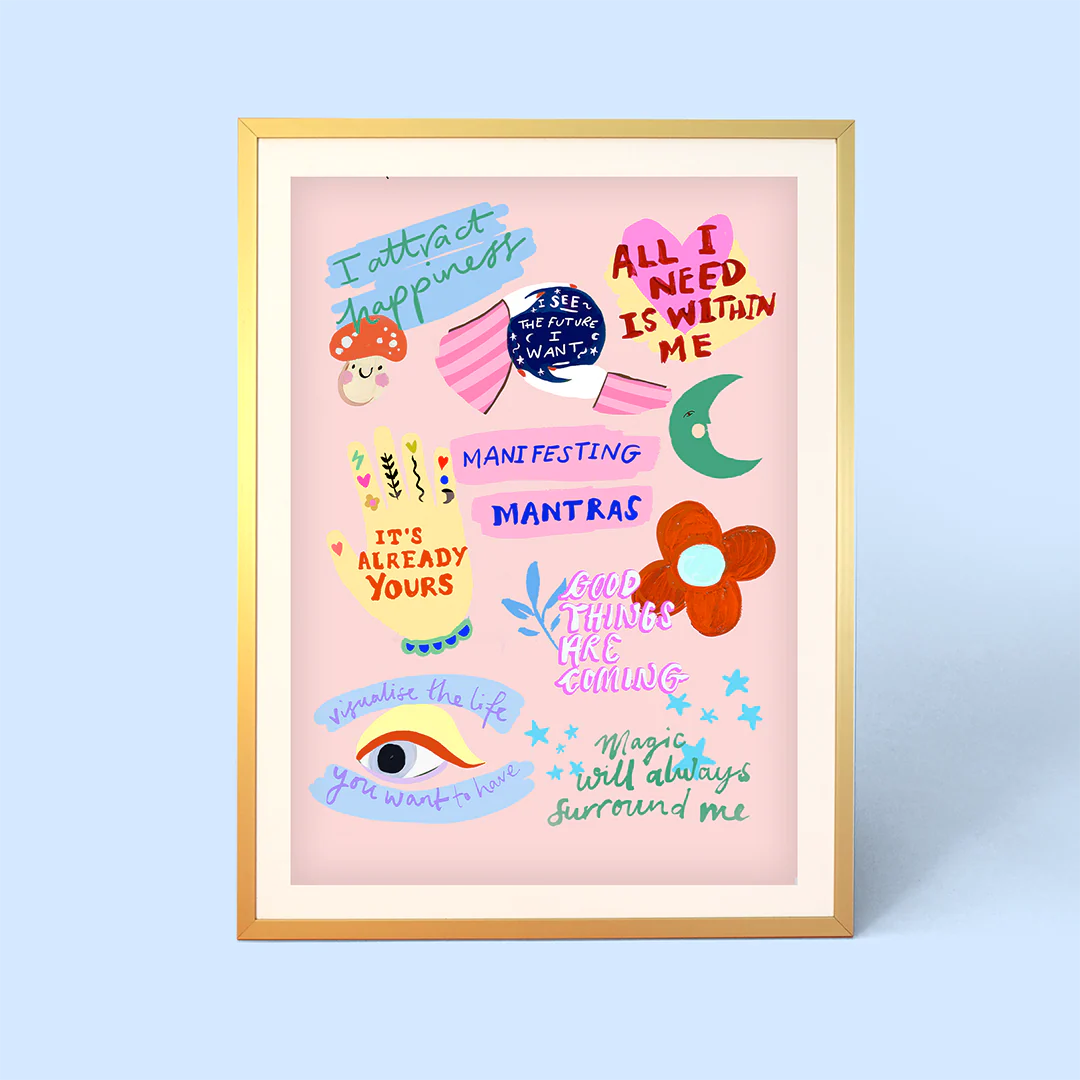 I attract
happiness
I SEE
THE FUTURE
I
WANT
ALL I
NEED
IS WITHIN
ME
MANIFESTING
MANTRAS
IT'S
ALREADY
YOURS
GOOD
THINGS
ARE
COMING
visualise the life
you want to have
Magic
will always
surround me